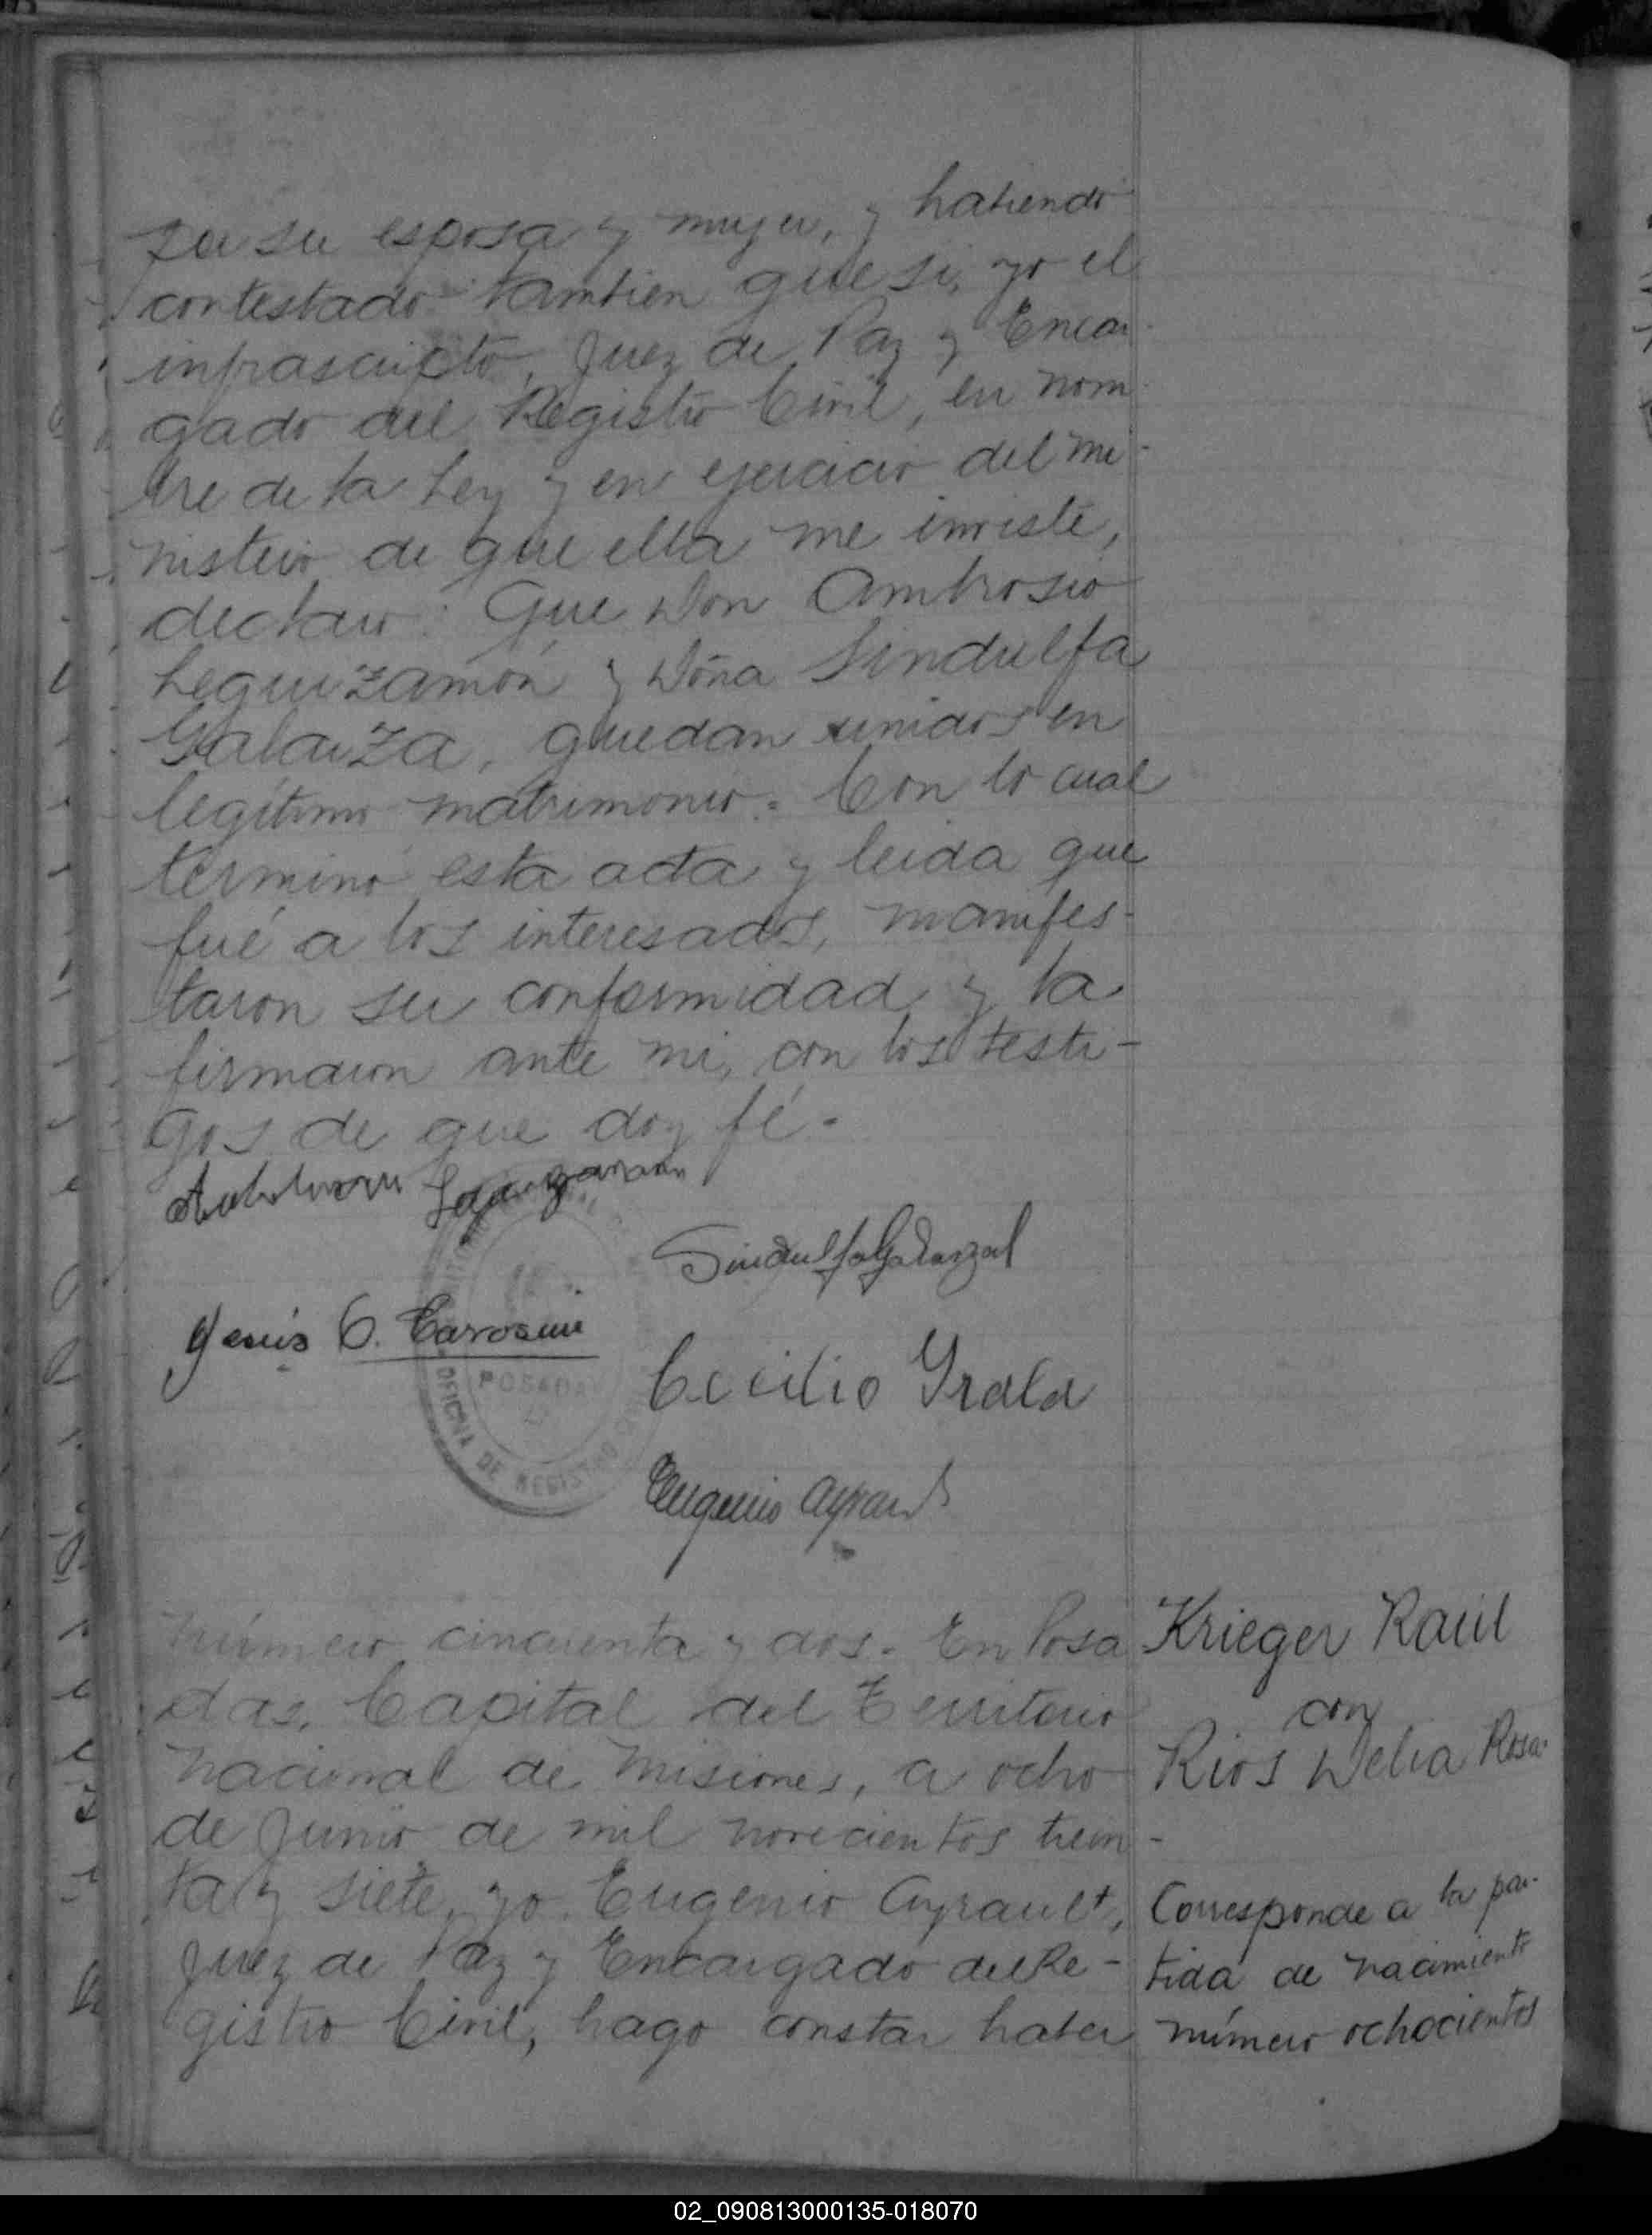 por su esposa y mujer, y habiendo
contestado tambien que si, yo el
infrascripto, Juez de Paz y Encar-
gado del Registro Civil, en nom-
bre de la Ley y en ejercicio del mi-
nisterio de que ella me inviste,
declaro: Que Don Ambrosio
Leguizamón y Doña Sindulfa
Galarza, quedan unidos en
legítimo matrimonio. Con lo cual
terminó esta acta y leida que
fué a los interesados, manifes-
taron su conformidad y la
firmaron ante mi, con los testi-
gos de que doy fé.
Leguizamon
Sindulfa Galarza
Jesús C. Carosini
POSADAS
OFICINA DE REGISTRO
Cecilio Grala
Eugenio Ayrault
Número cincuenta y dos. En Posa
das, Capital del Territorio
Nacional de Misiones, a ocho
de Junio de mil novecientos trein-
ta y siete, yo Eugenio Ayrault,
Juez de Paz y Encargado del Re-
gistro Civil, hago constar haber
Krieger Raúl
con
Rios Delia Rosa.
Corresponde a la par-
tida de nacimiento
número ochocientos
02_090813000135-018070